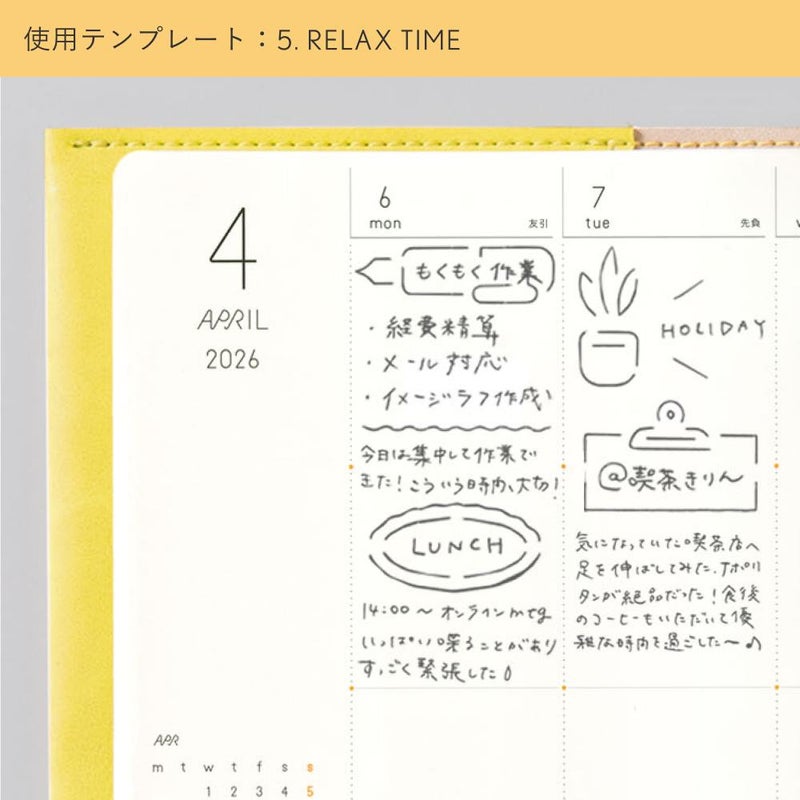 使用テンプレート：5. RELAX TIME
4
APRIL
2026
6
mon
友引
もくもく作業
・経費精算
・メール対応
・イメージラフ作成
今日は集中して作業で
きた！こういう時間、大切！
LUNCH
14:00～オンラインmtg
すっごく緊張した
7
tue
先負
HOLIDAY
@喫茶きりん
気になっていた喫茶店へ
足を伸ばしてみた。ナポリ
タンが絶品だった！食後
のコーヒーもいただいて優
雅な時間を過ごした〜♪
APR
m t w t f s s
1 2 3 4 5